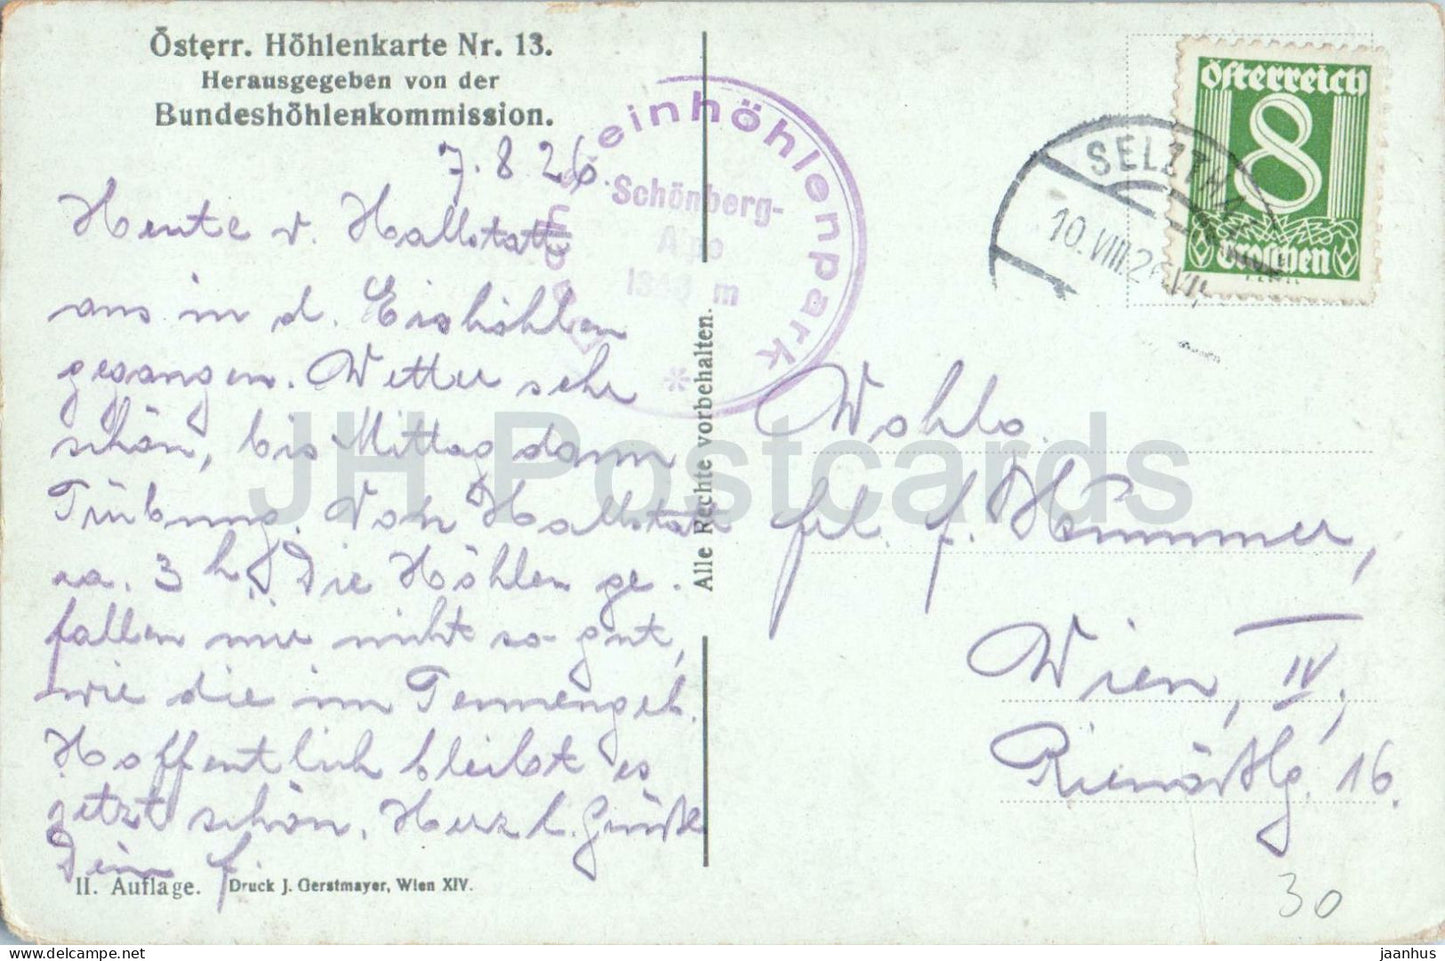 Österr. Höhlenkarte Nr. 13.
Herausgegeben von der
Bundeshöhlenkommission.
7.8.26.
Heute v. Hallstatt
aus in d. Eishöhlen
gegangen. Wetter sehr
schön, bis Mittag dann
Trübung. Von Hallstatt
ca. 3 h. Die Höhlen ge-
fallen mir nicht so gut,
wie die im Tennengeb.
Hoffentlich bleibt es
jetzt schön. Herzl. Grüße
Dein f.
II. Auflage. Druck J. Gerstmayer, Wien XIV.
Alle Rechte vorbehalten.
einhöhlenpark
Schönberg-
Alpe
m
SELZTHAL
10.VIII.26
Österreich
8
Groschen
Wohlg.
Frl. f. Hammer,
Wien, IV.,
16.
30
JH Postcards
jaanhus